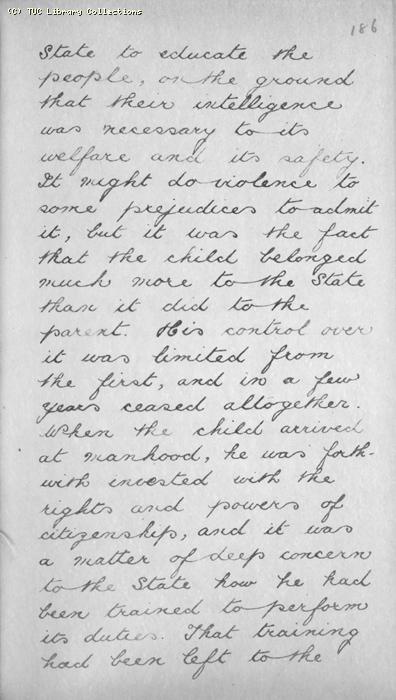 (C) TUC Library Collections
186
State to educate the
people, on the ground
that their intelligence
was necessary to its
welfare and its safety.
It might do violence to
some prejudices to admit
it, but it was the fact
that the child belonged
much more to the State
than it did to the
parent. His control over
it was limited from
the first, and in a few
years ceased altogether.
When the child arrived
at manhood, he was forth-
with invested with the
rights and powers of
citizenship, and it was
a matter of deep concern
to the State how he had
been trained to perform
its duties. That training
had been left to the